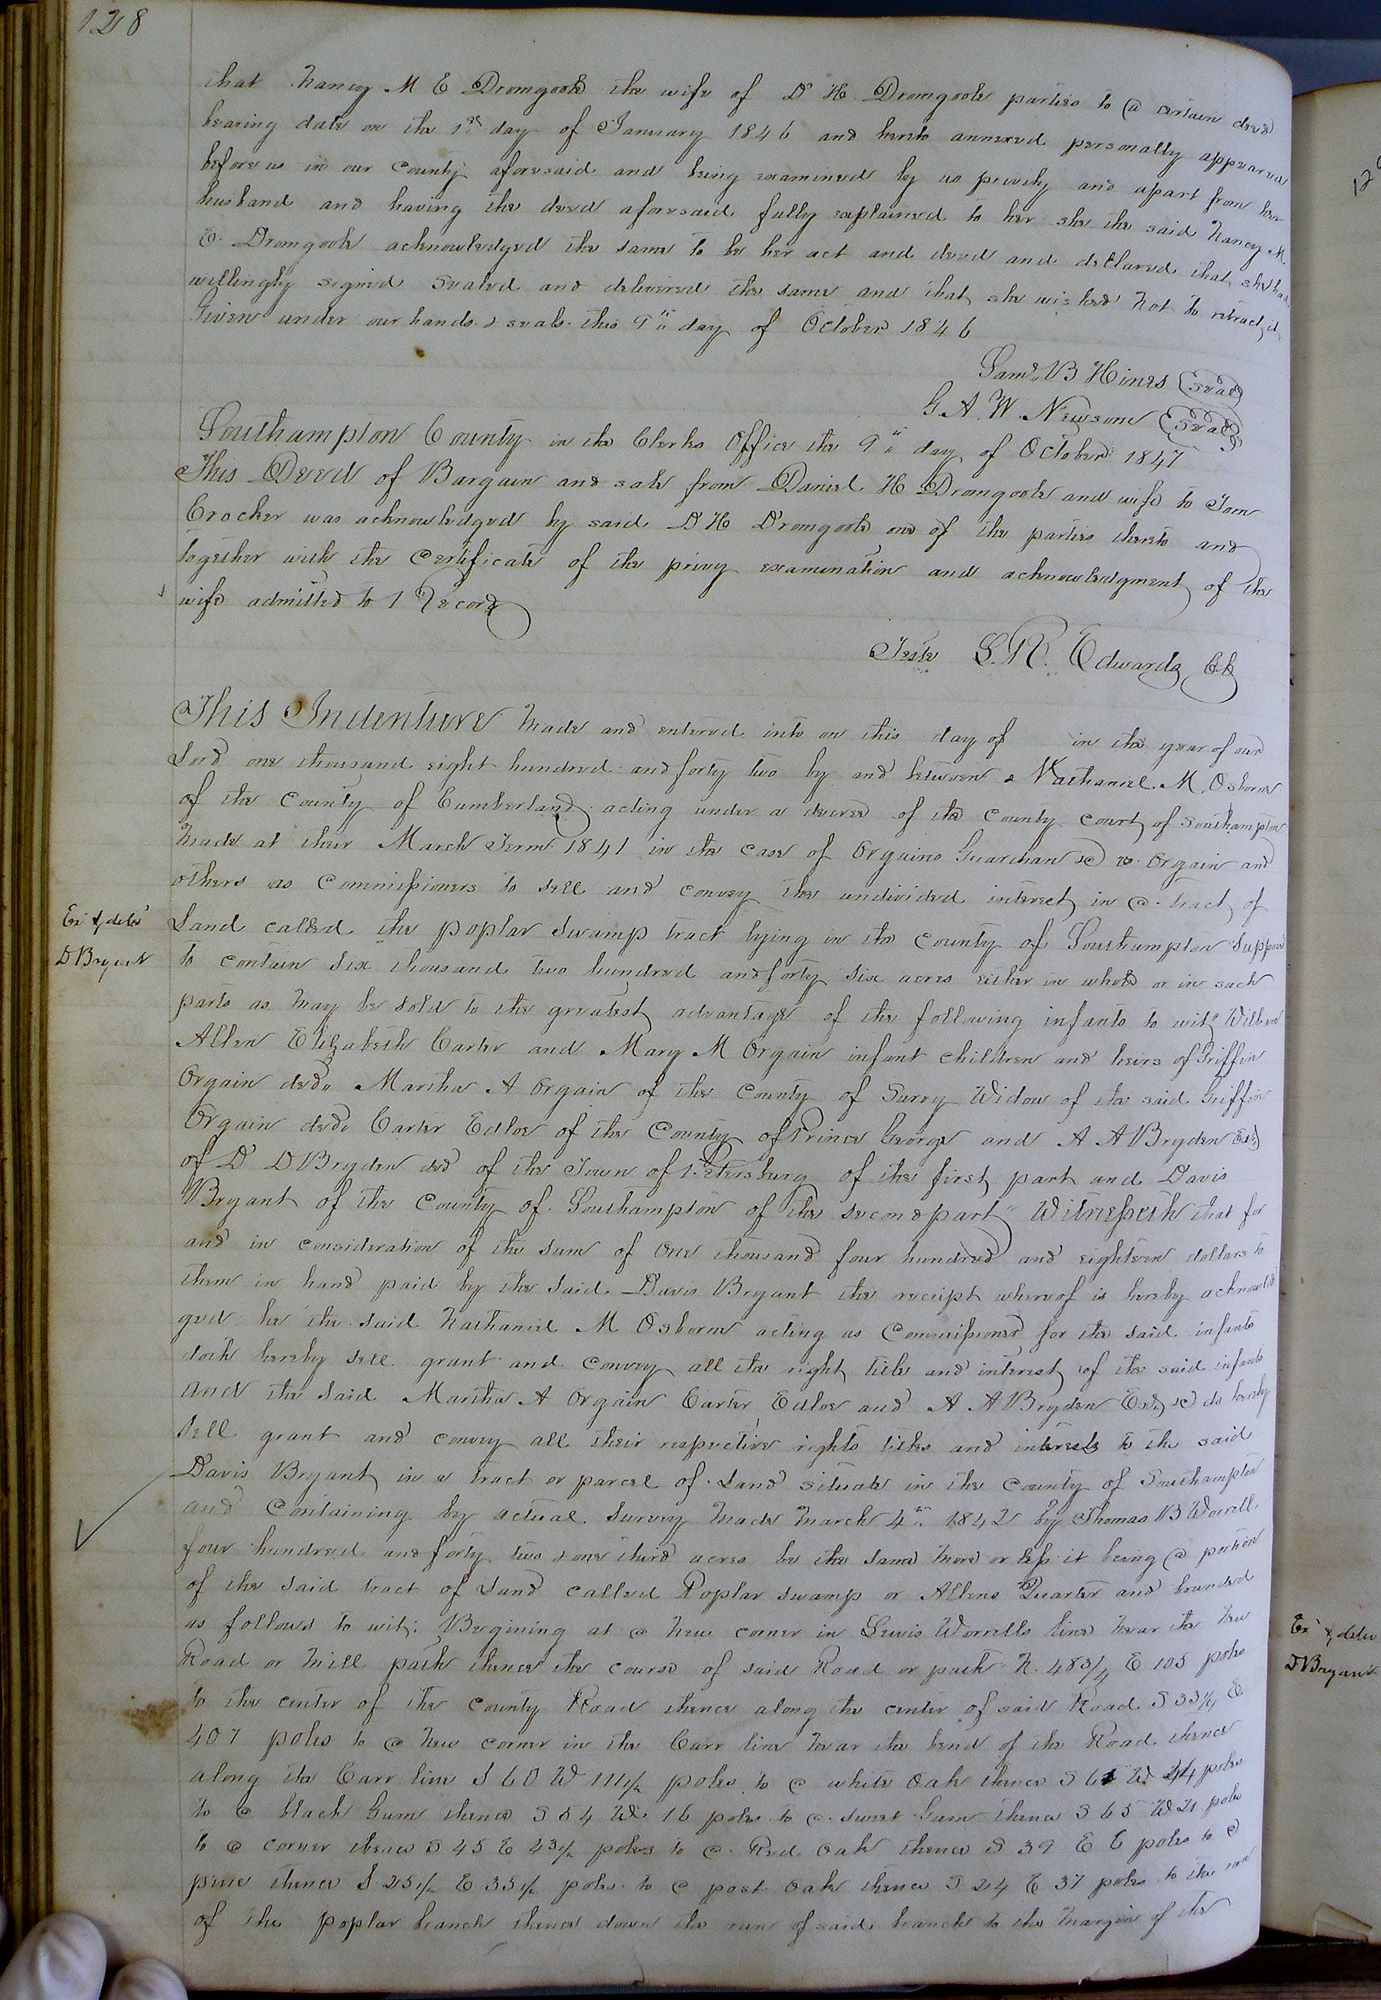 128
that Nancy M E Dromgoole the wife of D H Dromgoole parties to a certain deed
bearing date on the 1st day of January 1846 and hereto annexed personally appeared
before us in our County aforesaid and being examined by us privily and apart from her
husband and having the deed aforesaid fully explained to her she the said Nancy M
E. Dromgoole acknowledged the same to be her act and deed and declared that she had
willingly signed sealed and delivered the same and that she wished not to retract it
Given under our hands & seals this 9th day of October 1846
Saml. B Hines Seal
G. A. W. Newsom Seal
Southampton County in the Clerks Office the 9th day of October 1847
This Deed of Bargain and sale from Daniel H Dromgoole and wife to Jam
Crocker was acknowledged by said D H Dromgoole one of the parties thereto and
together with the Certificate of the privy examination and acknowledgment of the
wife admitted to Record
Teste L. R. Edwards Clk
This Indenture Made and entered into on this day of in the year of our
Lord one thousand eight hundred and forty two by and between Nathaniel M. Osborne
of the County of Cumberland acting under a decree of the County court of Southampton
Made at their March Term 1841 in the case of Orgains Guardian &c vs. Orgain and
others as Commissioners to sell and convey the undivided interest in a tract of
Ex & deld
D Bryant
Land called the poplar swamp tract lying in the County of Southampton Supposed
to contain Six thousand two hundred and forty six acres either in whole or in such
parts as may be sold to the greatest advantage of the following infants to wit,
Allen Elizabeth Carter and Mary M Orgain infant children and heirs of Griffin
Orgain decd. Martha A Orgain of the County of Surry Widow of the said Griffin
Orgain decd. Carter Edloe of the County of Prince George and A A Bryden Exr.
of D D Bryden decd of the Town of Petersburg of the first part and Davis
Bryant of the County of Southampton of the second part Witnesseth that for
and in consideration of the sum of One thousand four hundred and eighteen dollars to
them in hand paid by the said Davis Bryant the receipt whereof is hereby acknowled
ged he the said Nathaniel M Osborne acting as Commissioner for the said infants
doth hereby sell grant and convey all the right title and interest of the said infants
and the said Martha A Orgain Carter Edloe and A A Bryden Exr. &c do hereby
sell grant and convey all their respective rights titles and interests to the said
Davis Bryant in a tract or parcel of Land situate in the County of Southampton
and Containing by actual Survey Made March 4th 1842 by Thomas B Worrell
four hundred and forty two & one third acres be the same more or less it being a portion
of the said tract of Land called Poplar swamp or Allens Quarter and bounded
as follows to wit: Begining at a New corner in Lewis Worrells line near the New
Road or Mill path thence the course of said Road or path N. 48 3/4 E 105 poles
to the center of the County Road thence along the center of said Road S 33 1/4 E
407 poles to a New corner in the Carr line near the bend of the Road thence
along the Carr line S 60 W 111 1/2 poles to a white Oak thence S W 44 poles
to a black Gum thence S 54 W 16 poles to a sweet Gum thence S 65 W 21 poles
to a corner thence S 45 E 43 1/2 poles to a Red Oak thence S 39 E 6 poles to a
pine thence S 25 1/2 E 35 1/2 poles to a post Oak thence S 24 E 37 poles to the run
of the poplar branch thence down the run of said branch to the Margin of the
Ex & deld
D Bryant